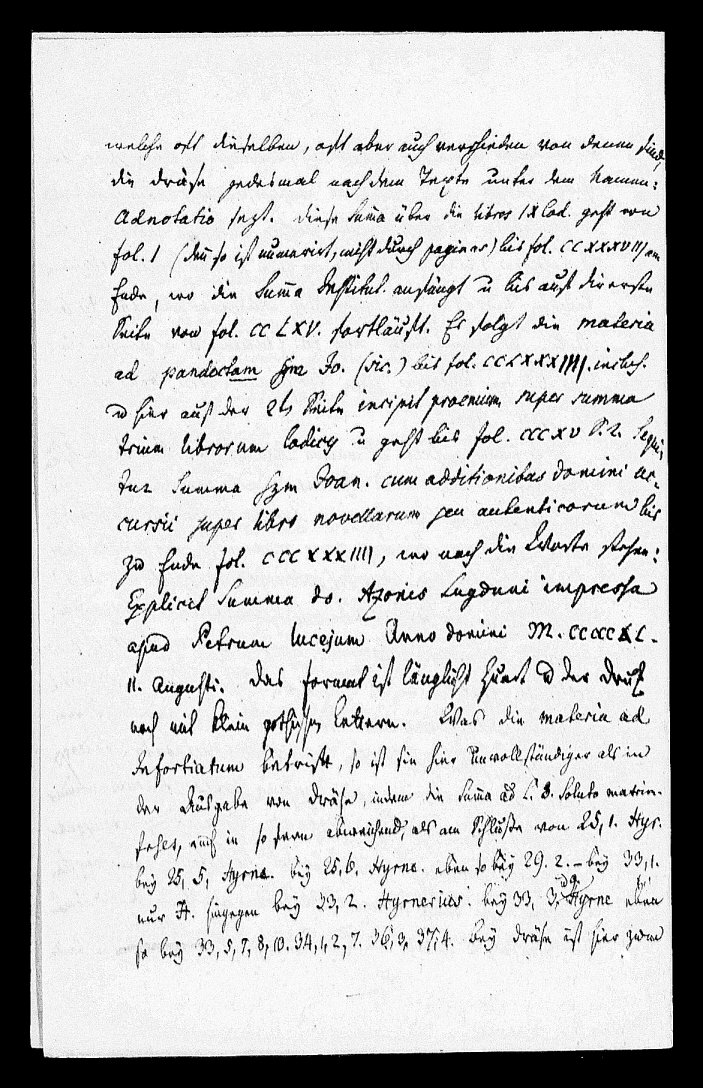 welche oft dieselben, oft aber auch verschieden von denen sind,
die Dräse jedesmal nach dem Texte unter dem Namen:
Adnotatio sezt. Diese Suma über die libros IX Cod. geht von
fol. 1 (den so ist numerirt, nicht durch paginas) bis fol. CCXXXVIII am
Ende, wo die Suma Institut. anfängt u bis auf die erste
Seite von fol. CCLXV. fortläuft. Es folgt die materia
ad pandectam Jo. (sic.) bis fol. CCLXXXIIII. inclus.
u hier auf der 2t Seite incipit proemium super summa
trium librorum Codicis u geht bis fol. CCCXV S. 2. Sequi-
tur Summa Joan. cum additionibus domini ac-
cursii super libro novellarum seu autenticorum bis
zu Ende fol. CCCXXXIIII, wo noch die Worte stehen:
Explicit Summa do. Azonis Lugduni impressa
apud Petrum Anno domini M.
11. Augusti. Das Format ist länglicht Quart u der Druk
noch mit klein gothischen Lettern. Was die materia ad
Infortiatum betrifft, so ist sie hier unvollständiger als in
der Ausgabe von Dräse, indem die Suma ad t. 3. Soluto matrim.
fehlet, auch in so fern abweichend, als am Schluße von 25, 1. Hyr.
bey 25, 5, Hyrne. bey 25, 6. Hyrne. eben so bey 29. 2. – bey 33, 1.
nur H. hingegen bey 33, 2. Hyrnerius. bey 33, 3, Hyrne eben
so bey 33, 5, 7, 8, 10. 34, 1, 2, 7. 36, 3, 37, 4. Bey Dräse ist hier zwar